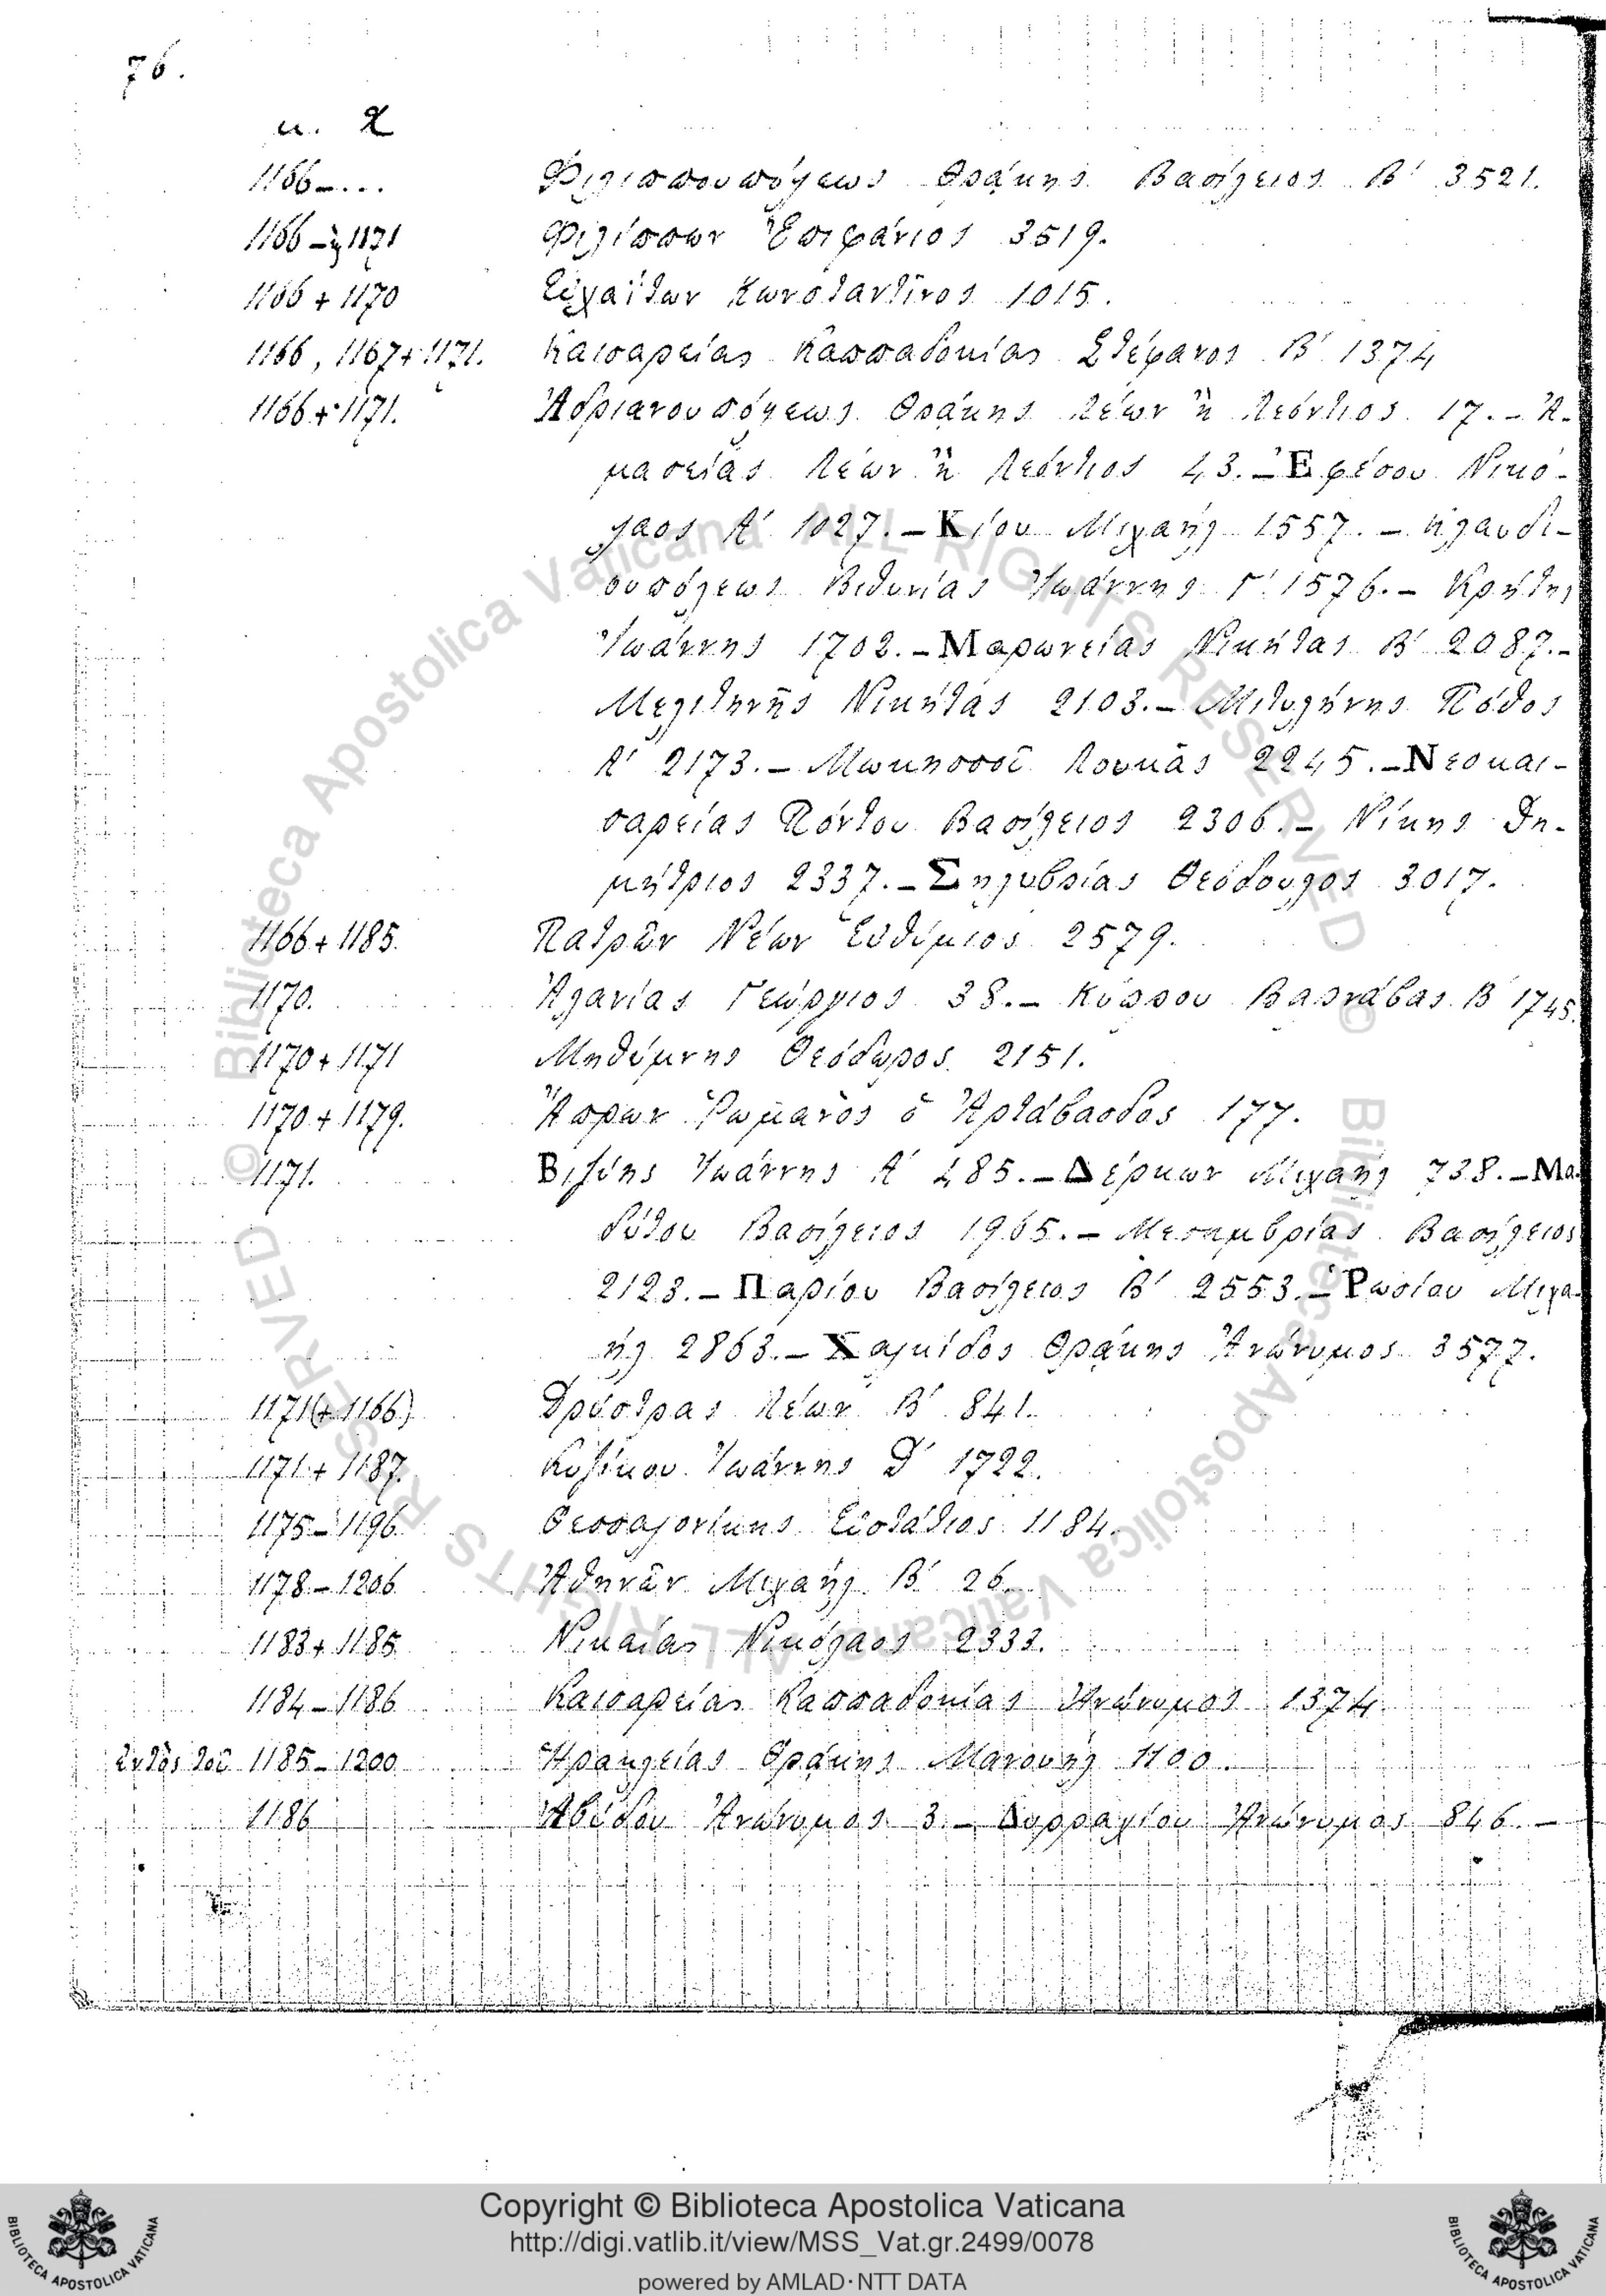 76.
μ. Χ
1166 - ... Φιλιππουπόλεως Θράκης Βασίλειος Β' 3521.
1166 - ἢ 1171 Φιλίππων Ἐπιφάνιος 3519.
1166 + 1170 Εὐχαΐτων Κωνσταντῖνος 1015.
1166, 1167 + 1171. Καισαρείας Καππαδοκίας Στέφανος Β' 1374
1166 + 1171. Ἀδριανουπόλεως Θράκης Λέων ἢ Λεόντιος 17. - Ἀ-
μασείας Λέων ἢ Λεόντιος 43. - Ἐφέσου Νικό-
λαος Α' 1027. - Κίου Μιχαήλ 1557. - Κλαυδι-
ουπόλεως Βιθυνίας Ἰωάννης Γ' 1576. - Κρήτης
Ἰωάννης 1702. - Μαρωνείας Νικήτας Β' 2087. -
Μελιτηνῆς Νικήτας 2103. - Μιτυλήνης Πόθος
Α' 2173. - Μωκησσοῦ Λουκᾶς 2245. - Νεοκαι-
σαρείας Πόντου Βασίλειος 2306. - Νίκης Δη-
μήτριος 2337. - Σηλυβρίας Θεόδουλος 3017.
1166 + 1185. Πατρῶν Νέων Εὐθύμιος 2579.
1170. Ἀλανίας Γεώργιος 38. - Κύπρου Βαρνάβας Β' 1745.
1170 + 1171 Μηθύμνης Θεόδωρος 2151.
1170 + 1179. Ἄπρων Ῥωμανὸς ὁ Ἀρτάβασδος 177.
1171. Βιζύης Ἰωάννης Α' 485. - Δέρκων Μιχαήλ 738. - Μα-
δύτου Βασίλειος 1965. - Μεσημβρίας Βασίλειος
2123. - Παρίου Βασίλειος Β' 2553. - Ῥωσίου Μιχα-
ήλ 2863. - Χαλκίδος Θράκης Ἀνώνυμος 3577.
1171 (+ 1166) Δρύστρας Λέων Β' 841.
1171 + 1187. Κυζίκου Ἰωάννης Δ' 1722.
1175 - 1196 Θεσσαλονίκης Εὐστάθιος 1184.
1178 - 1206 Ἀθηνῶν Μιχαήλ Β' 26.
1183 + 1185 Νικαίας Νικόλαος 2333.
1184 - 1186 Καισαρείας Καππαδοκίας Ἀνώνυμος 1374
Ἐντὸς τοῦ 1185 - 1200 Ἡρακλείας Θράκης Μανουήλ 1100.
1186 Ἀβύδου Ἀνώνυμος 3. - Δυρραχίου Ἀνώνυμος 846. -
© Biblioteca Apostolica Vaticana ALL RIGHTS RESERVED
© Biblioteca Apostolica Vaticana ALL RIGHTS RESERVED
Copyright © Biblioteca Apostolica Vaticana
http://digi.vatlib.it/view/MSS_Vat.gr.2499/0078
powered by AMLAD·NTT DATA
BIBLIOTECA APOSTOLICA VATICANA
BIBLIOTECA APOSTOLICA VATICANA